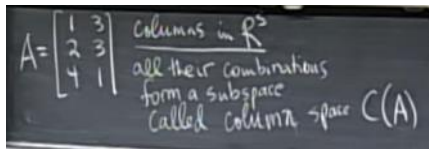 A = [ 1 3 ] columns in R³
[ 2 3 ] all their combinations
[ 4 1 ] form a subspace
called column space C(A)